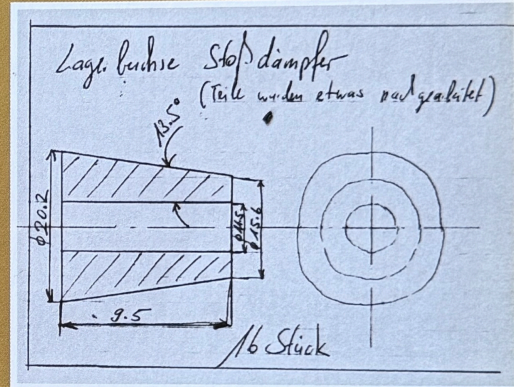 Lagerbuchse Stoßdämpfer
(Teile wurden etwas nachgearbeitet)
13.5°
ϕ20.2
ϕ15.6
9.5
16 Stück